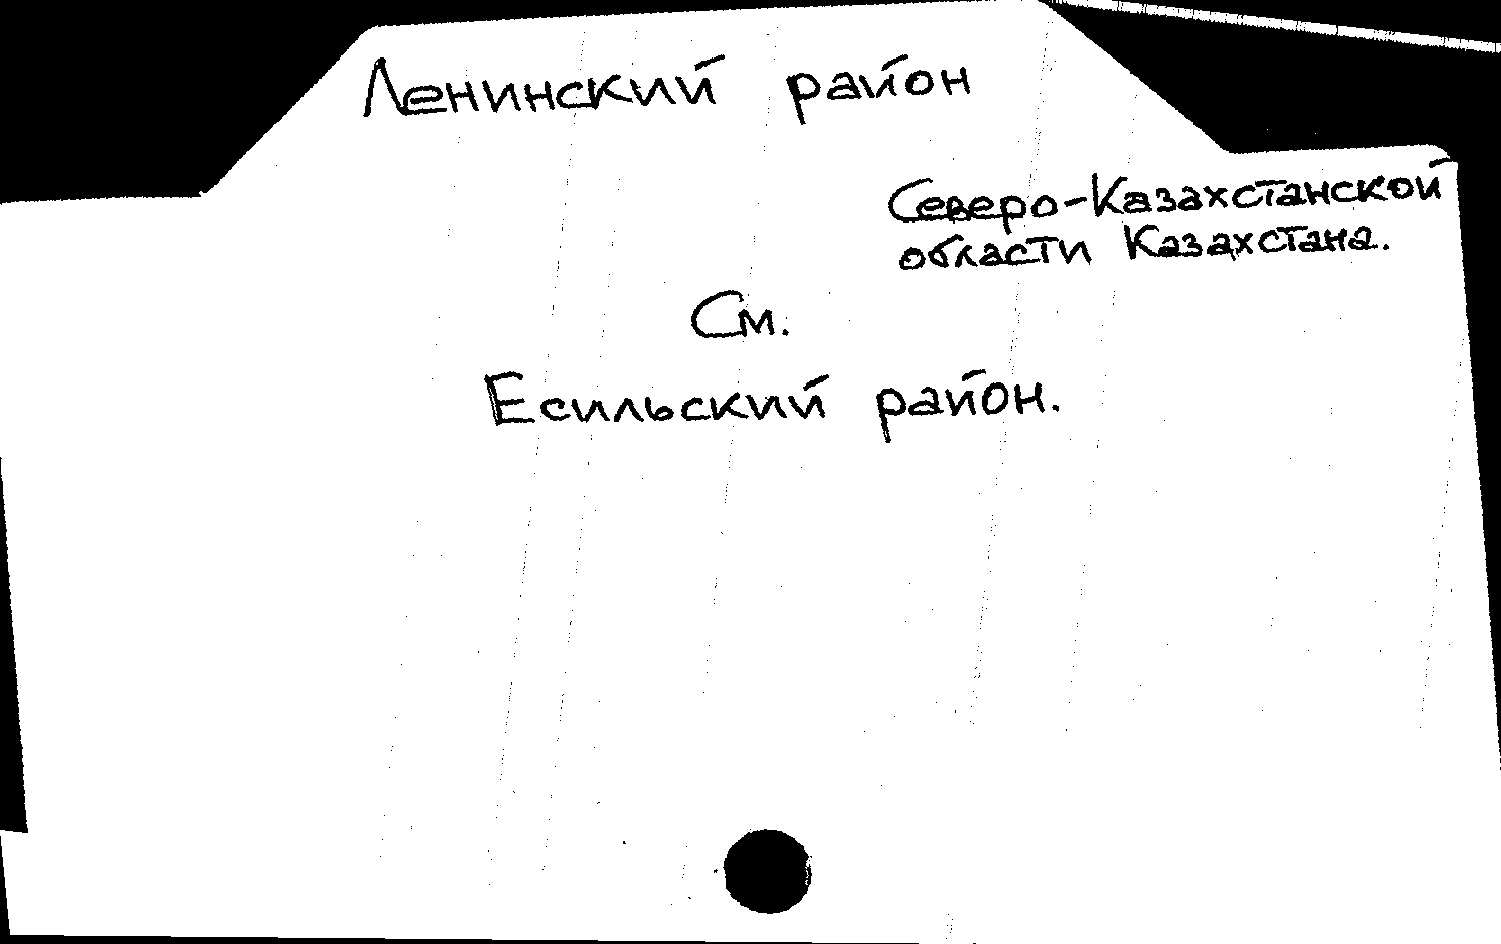 Ленинский район
Северо-Казахстанской
области Казахстана.
См.
Есильский район.